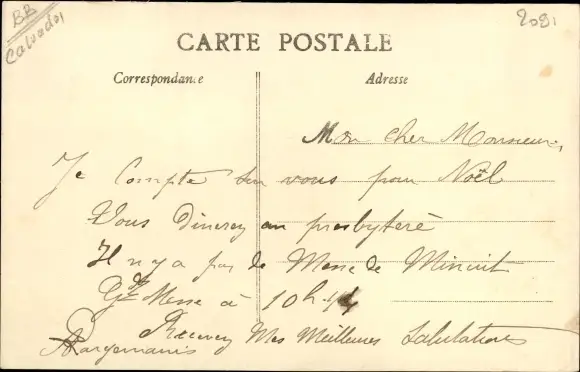 BB
Calvados
2091
CARTE POSTALE
Correspondance
Adresse
Mon cher Monsieur,
Je Compte sur vous pour Noël
Vous Dinerez au presbytère
Il n y a pas de Messe de Minuit
Gde Messe à 10h
Recevez Mes Meilleures Salutations